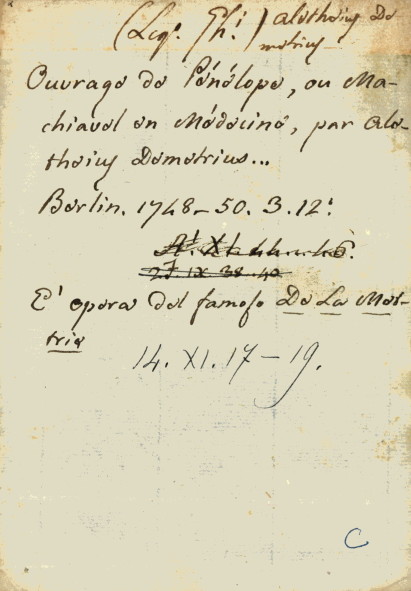 (Leg. Ph.) aletheius De
metrius
Ouvrage de Pénélope, ou Ma-
chiavel en Médecine, par Ale-
theius Demetrius...
Berlin. 1748-50. 3. 12.
27. IX 38-40
E' opera del famoso De La Met-
trie
14. XI. 17-19.
C